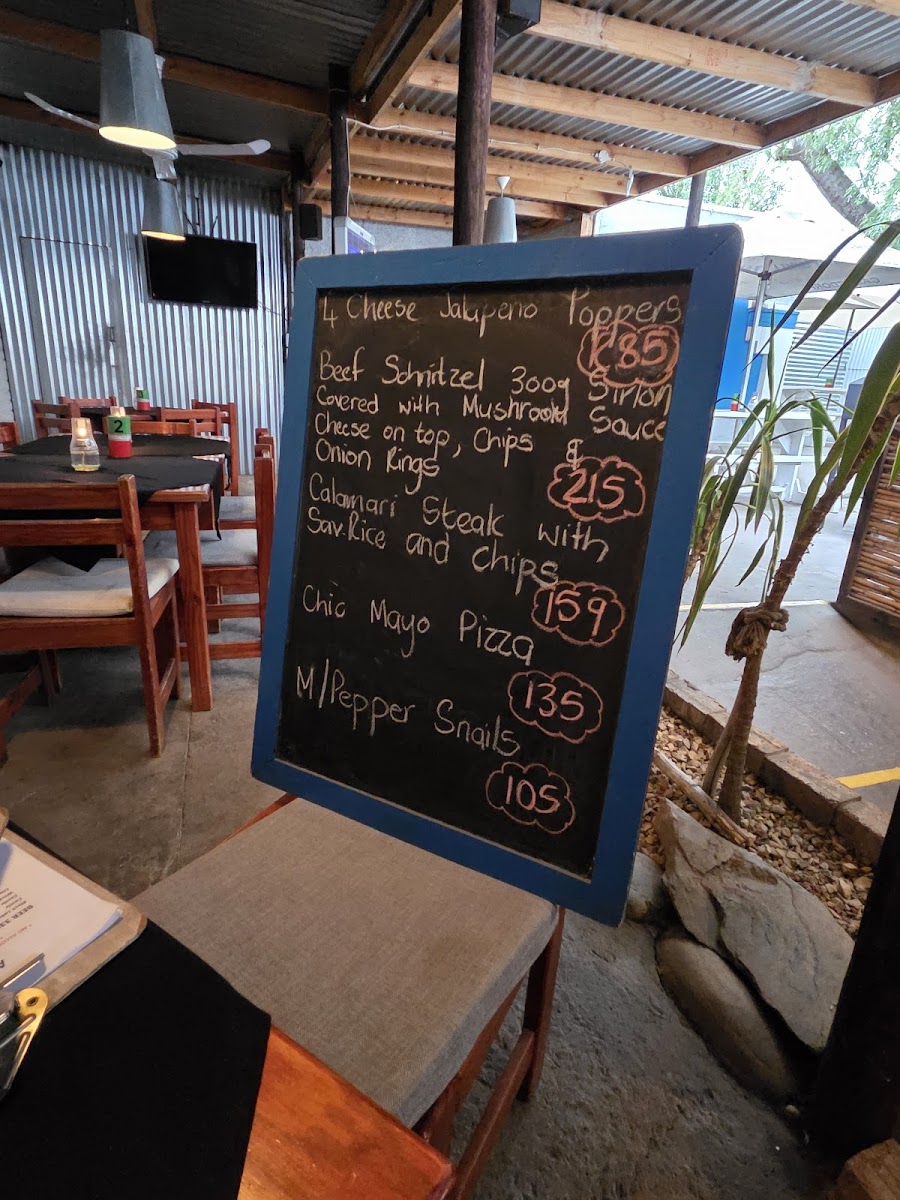 4 Cheese Jalapeno Poppers
R85
Beef Schnitzel 300g Sirloin
Covered with Mushroom Sauce
Cheese on top, Chips &
Onion Rings
215
Calamari Steak with
Sav.Rice and Chips
159
Chic Mayo Pizza
135
M/Pepper Snails
105
2